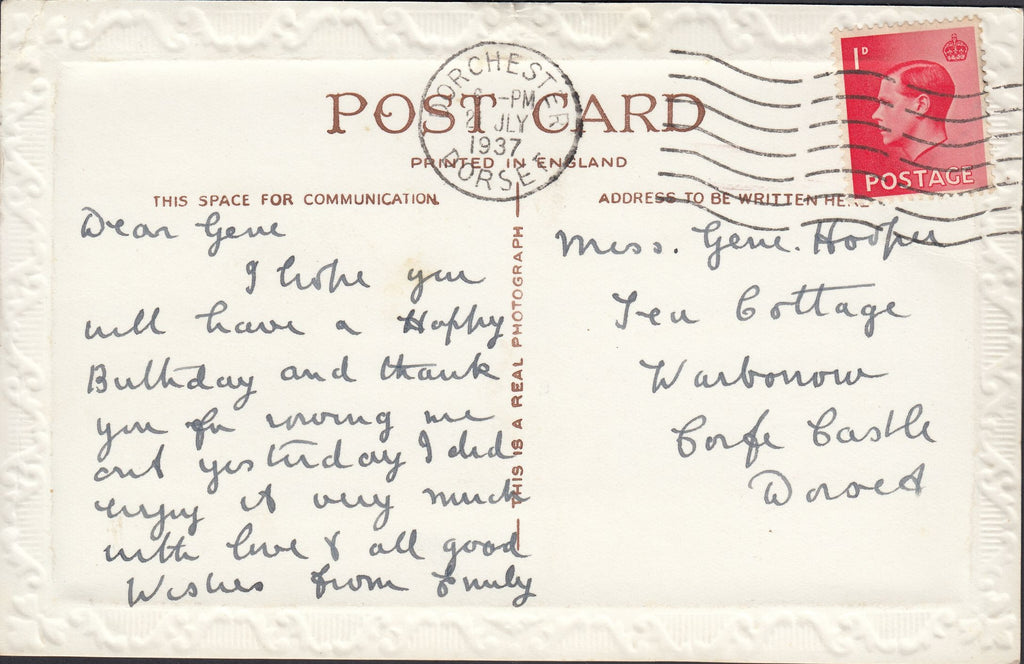 DORCHESTER
-PM
JLY
1937
DORSET
1D
POSTAGE
POST CARD
PRINTED IN ENGLAND
THIS SPACE FOR COMMUNICATION.
ADDRESS TO BE WRITTEN HE
THIS IS A REAL PHOTOGRAPH
Dear Gene
I hope you
will have a Happy
Birthday and thank
you for rowing me
out yesterday I did
enjoy it very much
with love & all good
Wishes from Emily
Miss. Gene. Hooper
Cottage
Warbonow
Corfe Castle
Dorset